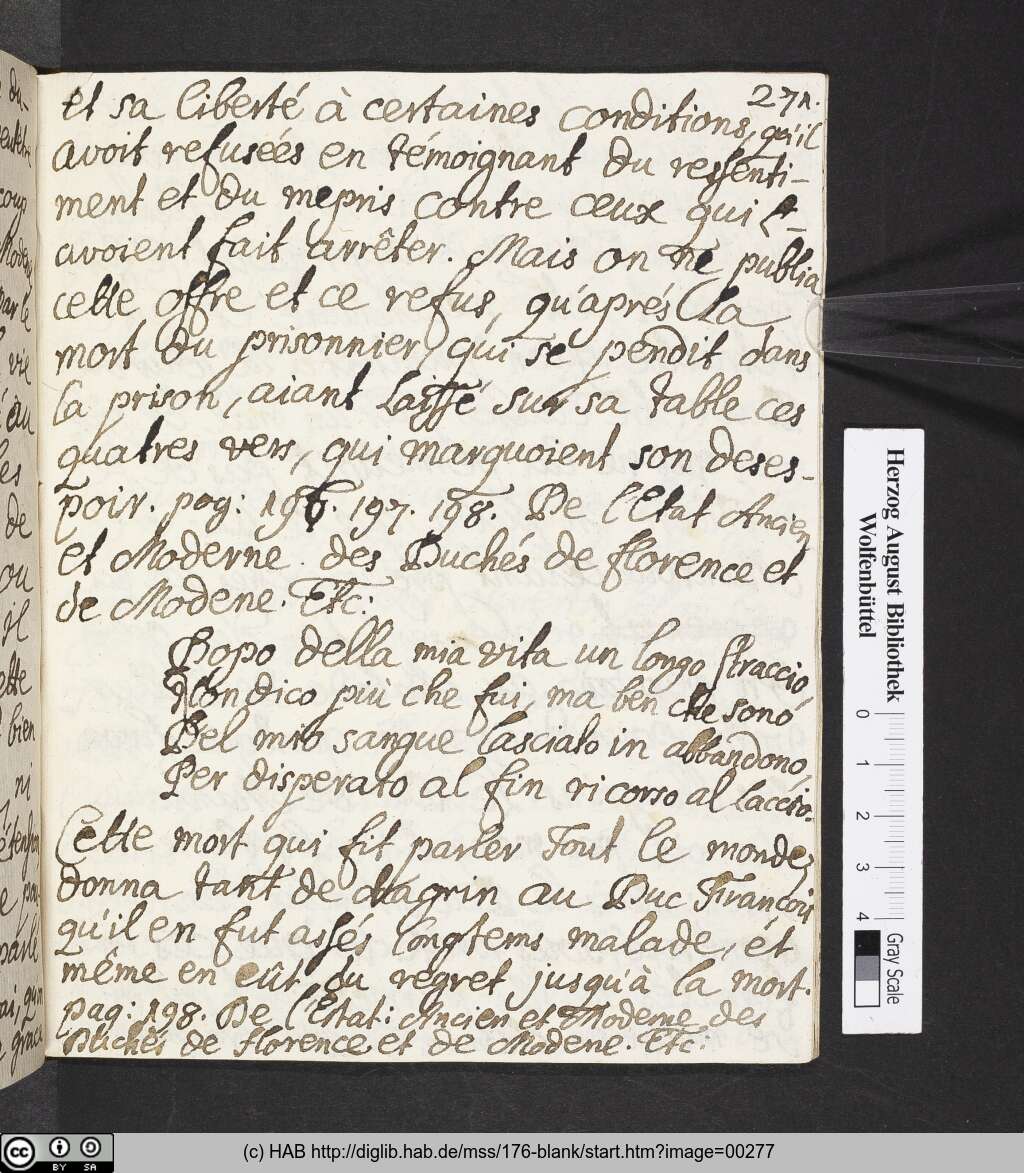 271.
et sa liberté à certaines conditions, qu'il
avoit refusées en témoignant du ressenti-
ment et du mepris contre ceux qui l'-
avoient fait arrêter. Mais on ne publia
cette offre et ce refus, qu'aprés la
mort du prisonnier, qui se pendit dans
la prison, aiant laissé sur sa table ces
quatres vers, qui marquoient son deses-
poir. pag: 196. 197. 198. De l'Etat Ancien
et Moderne des Duchés de florence et
de Modene. Etc:
Dopo della mia vita un longo straccio,
Non dico più che fui, ma ben che sono
Del mio sangue lasciato in abbandono,
Per disperato al fin ricorso al laccio.
Cette mort qui fit parler Tout le monde,
donna tant de chagrin au Duc François
qu'il en fut assés longtems malade, ét
même en eût du regret jusqu'à la mort.
pag: 198. De l'Etat: Ancien et Moderne des
Duchés de florence et de Modene. Etc:
Herzog August Bibliothek
Wolfenbüttel
0 1 2 3 4
Gray Scale
cc BY SA
(c) HAB http://diglib.hab.de/mss/176-blank/start.htm?image=00277